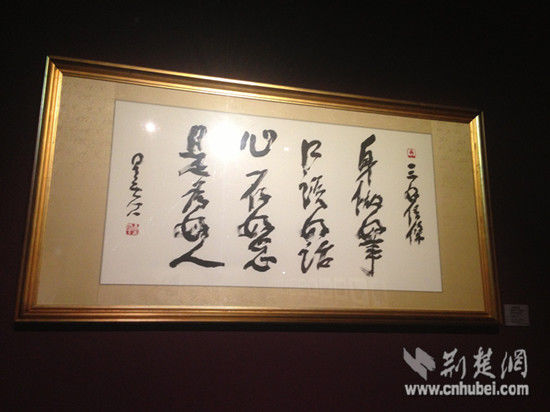 三好信條
身做好事
口說好話
心存好念
是為好人
星雲
荆楚網
www.cnhubei.com